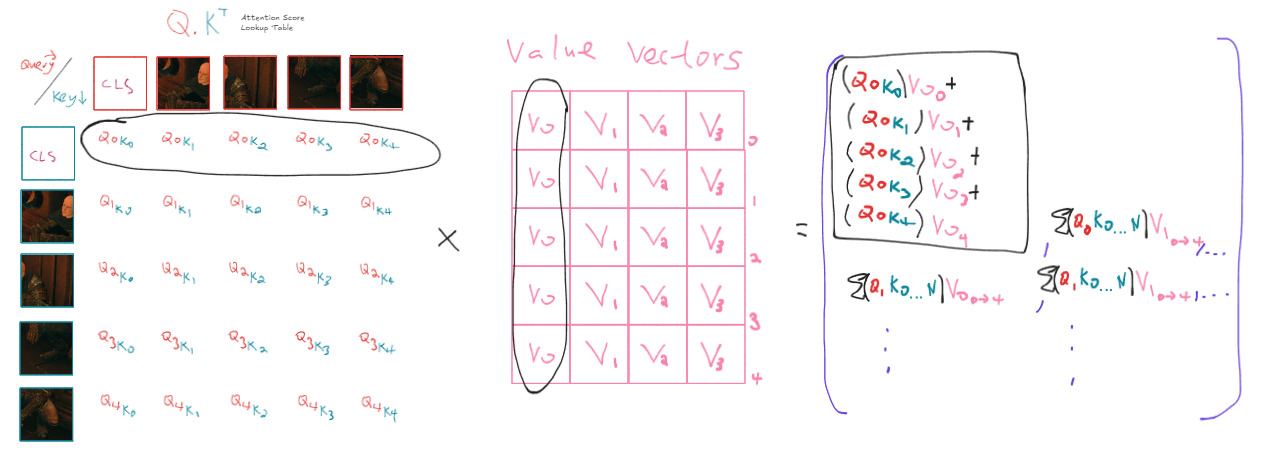 Q.K^T
Attention Score
Lookup Table
Query→
/
Key↓
CLS
CLS
Q0K0 Q0K1 Q0K2 Q0K3 Q0K4
Q1K0 Q1K1 Q1K2 Q1K3 Q1K4
Q2K0 Q2K1 Q2K2 Q2K3 Q2K4
Q3K0 Q3K1 Q3K2 Q3K3 Q3K4
Q4K0 Q4K1 Q4K2 Q4K3 Q4K4
×
Value vectors
V0 V1 V2 V3 0
V0 V1 V2 V3 1
V0 V1 V2 V3 2
V0 V1 V2 V3 3
V0 V1 V2 V3 4
=
(Q0K0)V0₀+
(Q0K1)V0₁+
(Q0K2)V0₂+
(Q0K3)V0₃+
(Q0K4)V0₄
, Σ(Q0K0...N)V1₀→₄,...
Σ(Q1K0...N)V0₀→₄ , Σ(Q1K0...N)V1₀→₄,...